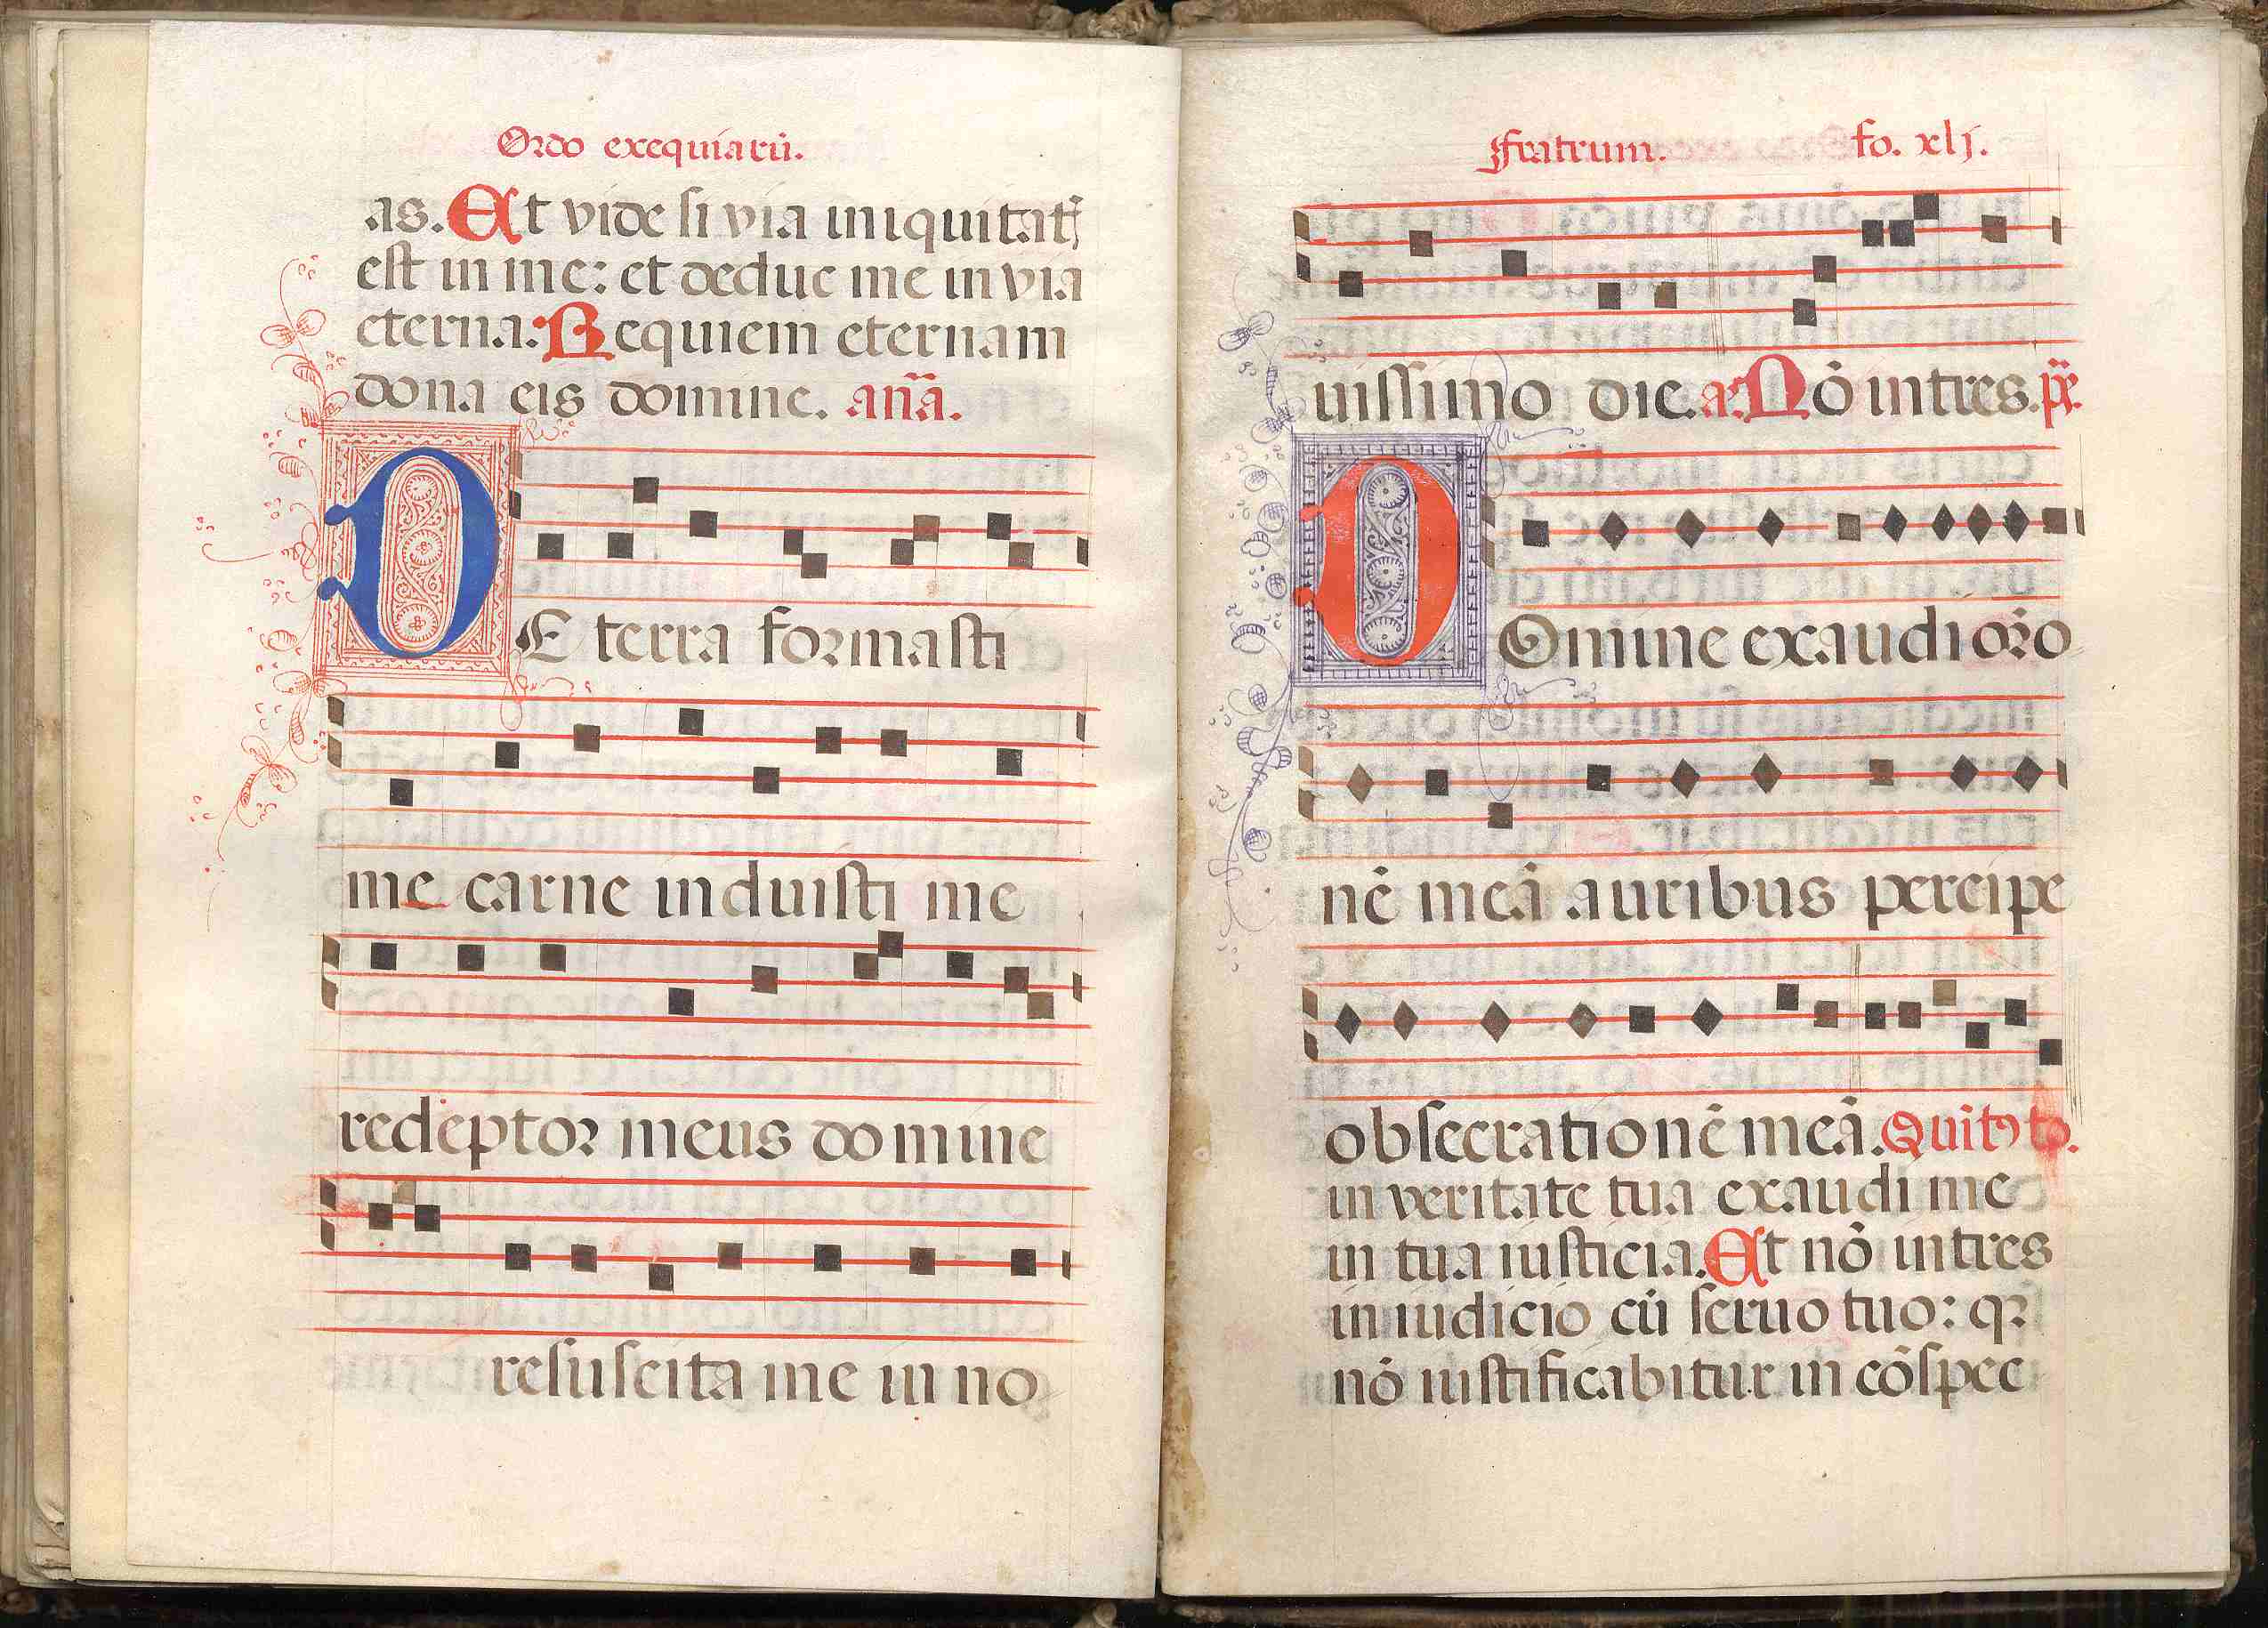 Ordo exequiarū.
as. Et vide si via iniquitatꝭ
est in me: et deduc me in via
eterna: Requiem eternam
dona eis domine. anā.
DE terra formasti
me carne induisti me
redēptor meus domine
resuscita me in no
Fratrum. fo. xlj.
uissimo die. a. Nō intres. ps̄.
DOmine exaudi or̄o
nē meā auribus percipe
obsecrationē meā. Quitꝯ to.
in veritate tua exaudi me
in tua iusticia. Et nō intres
in iudicio cū seruo tuo: qꝛ
nō iustificabitur in cōspec